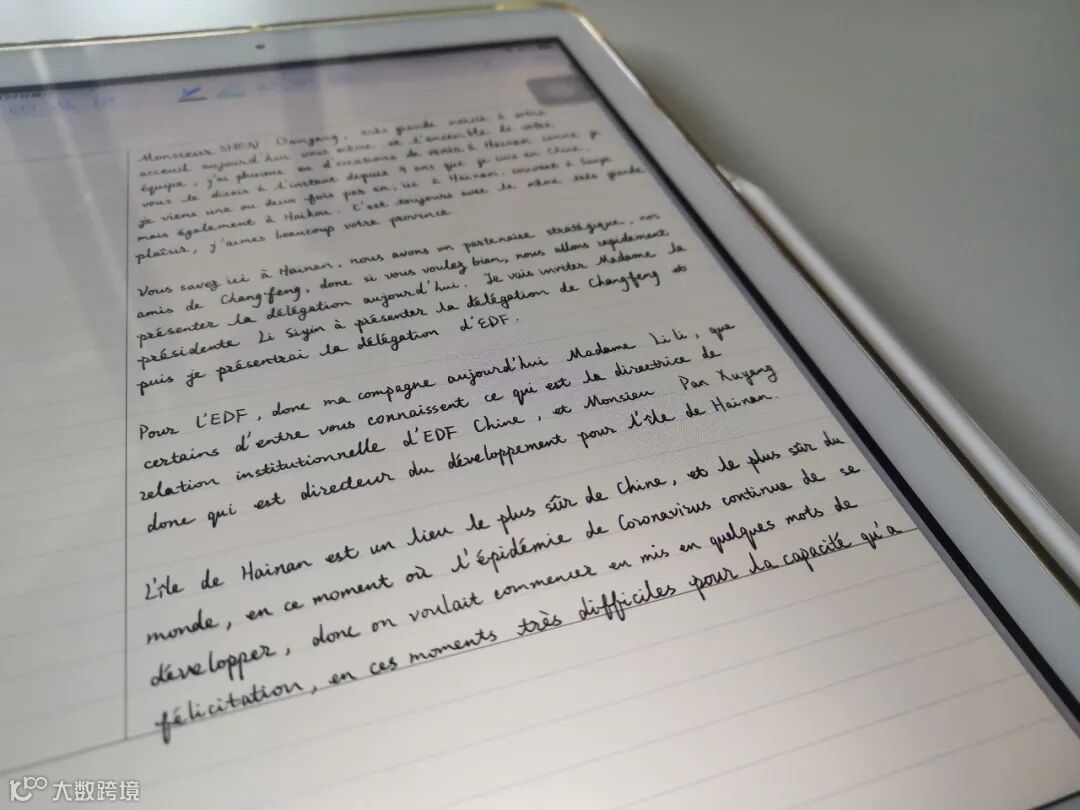 Monsieur SHEN Danyang, très grande merci à votre
acceuil aujourd'hui vous même, et l'ensemble de votre
équipe, j'ai plusieurs d'occations de venir à Hainan comme je
vous le disais à l'instant depuis 9 ans que je suis en Chine,
je viens une ou deux fois par an, ici à Hainan, souvent à Sanya
mais également à Haikou. C'est toujours avec le même très grande
plaisir, j'aimes beaucoup votre province.
Vous savez ici à Hainan, nous avons un partenaise stratégique, nos
amis de Changfeng, donc si vous voulez bien, nous allons rapidement
présenter la délégation aujourd'hui. Je vais inviter Madame la
présidente Li Siyin à présenter la délégation de Changfeng et
puis je présentrai la délégation d'EDF.
Pour L'EDF, donc ma compagne aujourd'hui Madame Li Li, que
certains d'entre vous connaissent ce qui est la directrice de
relation institutionnelle d'EDF Chine, et Monsieur Pan Xuyang
donc qui est directeur du développement pour l'île de Hainan.
L'île de Hainan est un lieu le plus sûr de Chine, et le plus sûr du
monde, en ce moment où l'épidémie de Coronavirus continue de se
développer, donc on voulait commencer en mis en quelques mots de
félicitation, en ces moments très difficiles pour la capacité qu'a
大数跨境